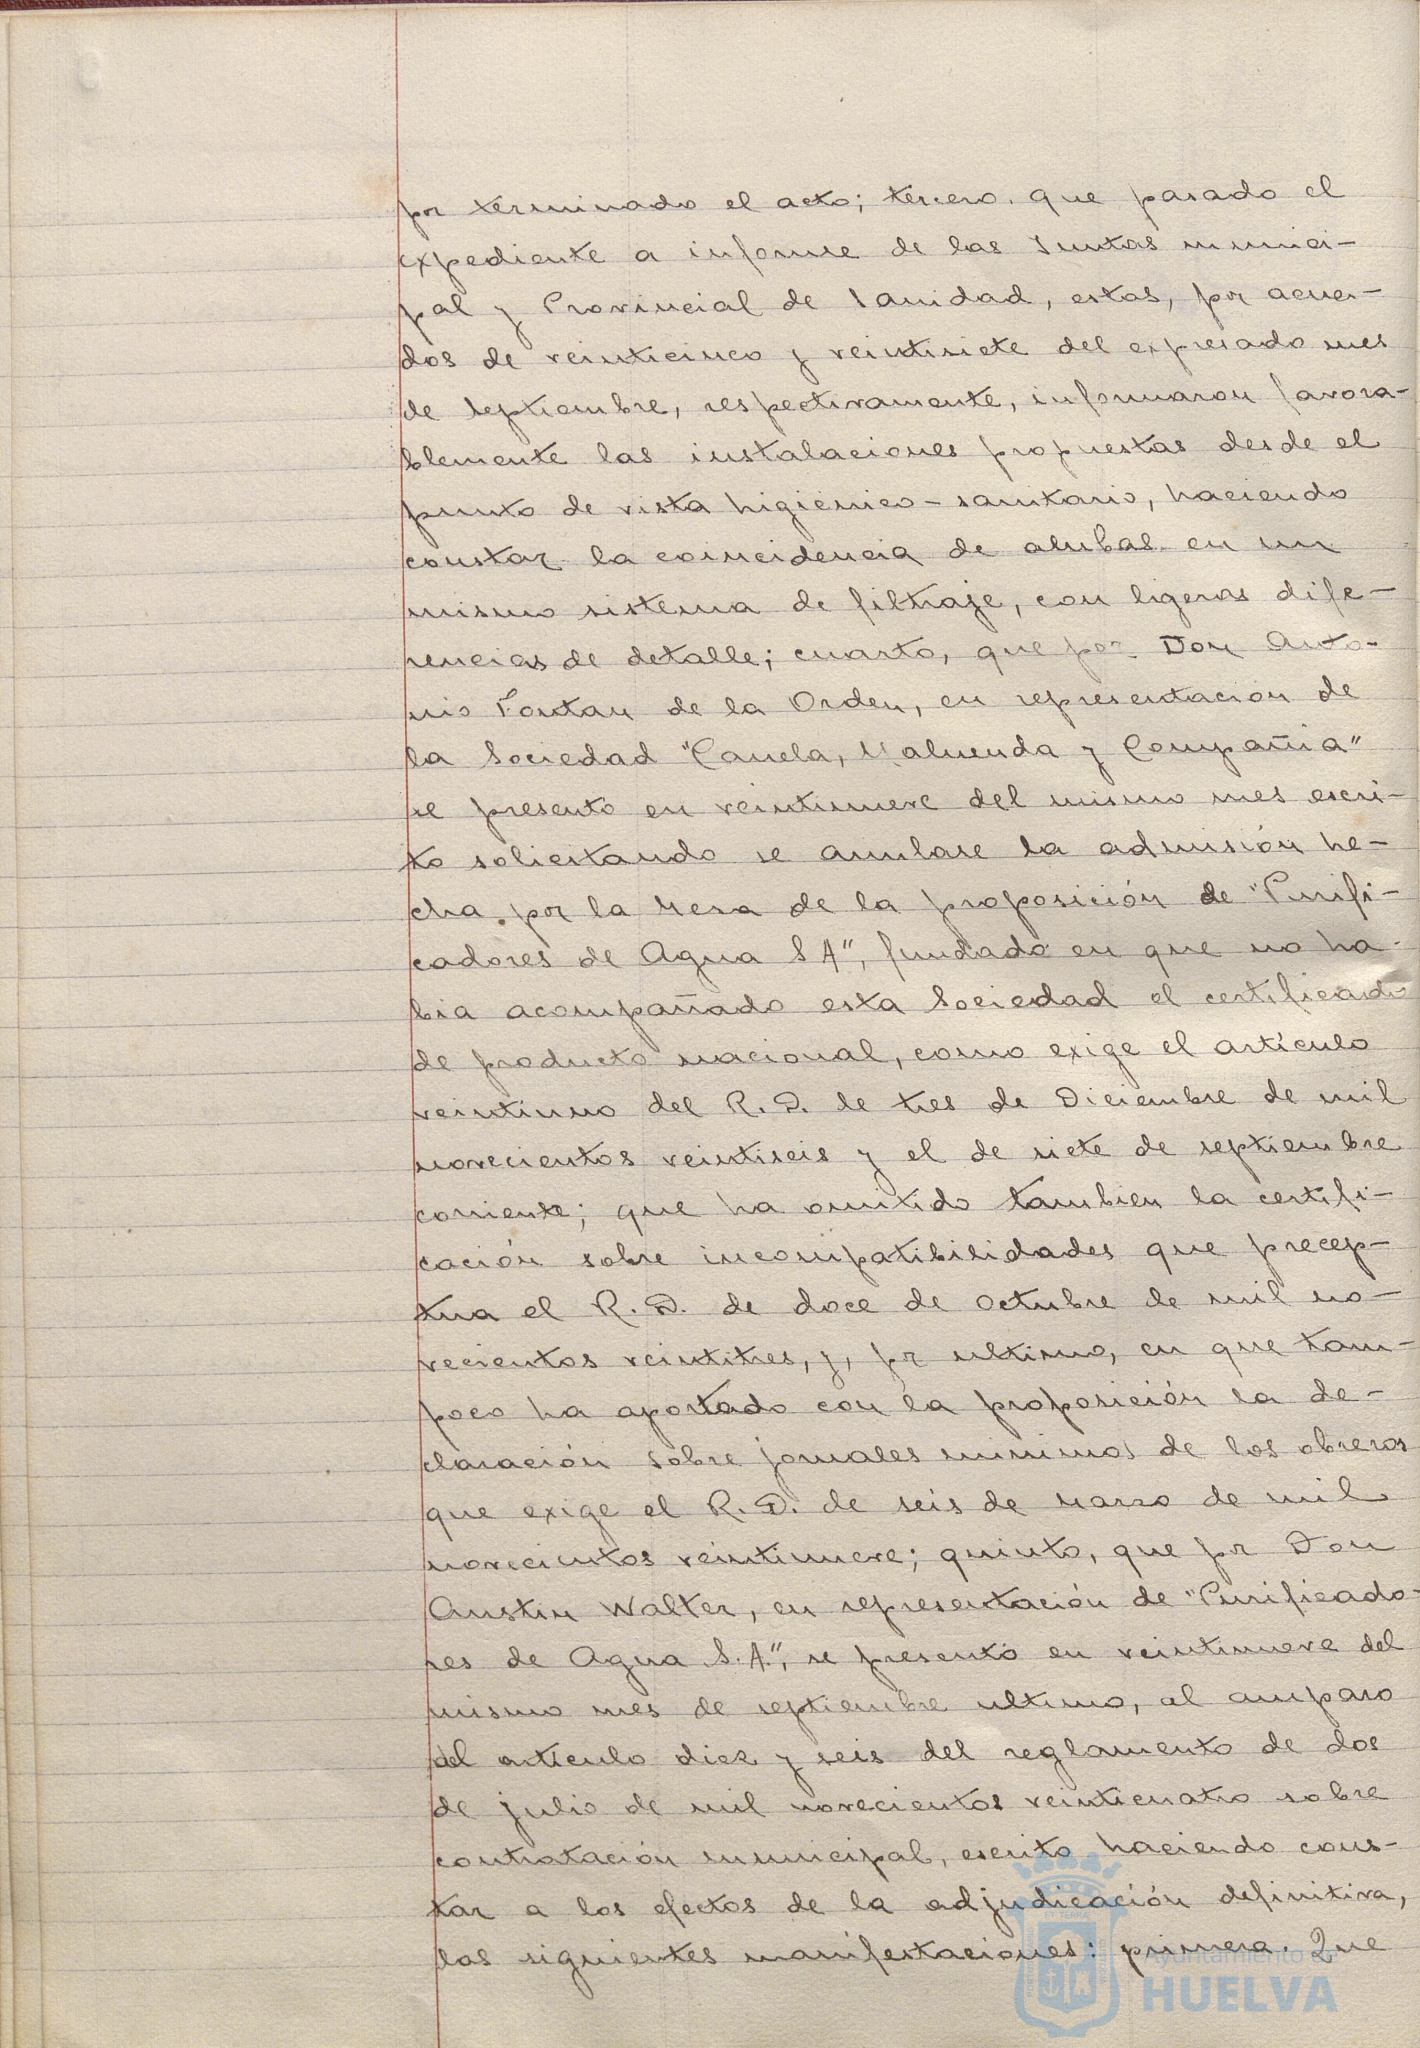 por terminado el acto; tercero. que pasado el
expediente a informe de las Juntas munici-
pal y Provincial de Sanidad, estas, por acuer-
dos de veinticinco y veintisiete del expresado mes
de septiembre, respectivamente, informaron favora-
blemente las instalaciones propuestas desde el
punto de vista higiénico-sanitario, haciendo
constar la coincidencia de ambas en un
mismo sistema de filtraje, con ligeras dife-
rencias de detalle; cuarto, que por Don Anto-
nio Fontan de la Orden, en representación de
la Sociedad "Canela, Maluenda y Compañia"
se presentó en veintinueve del mismo mes escri-
to solicitando se anulase la admisión he-
cha por la Mesa de la proposición de "Purifi-
cadores de Agua S A", fundado en que no ha-
bia acompañado esta Sociedad el certificado
de producto nacional, como exige el artículo
veintiuno del R. D. de tres de Diciembre de mil
novecientos veintiseis y el de siete de septiembre
corriente; que ha omitido tambien la certifi-
cación sobre incompatibilidades que precep-
tua el R. D. de doce de Octubre de mil no-
vecientos veintitres, y, por ultimo, en que tam-
poco ha aportado con la proposición la de-
claración sobre jornales minimos de los obreros
que exige el R. D. de seis de Marzo de mil
novecientos veintinueve; quinto, que por Don
Austin Walter, en representación de "Purificado-
res de Agua S. A.", se presentó en veintinueve del
mismo mes de septiembre ultimo, al amparo
del artículo diez y seis del reglamento de dos
de julio de mil novecientos veinticuatro sobre
contratación municipal, escrito haciendo cons-
tar a los efectos de la adjudicación definitiva,
las siguientes manifestaciones: primera. Que
Ayuntamiento de
HUELVA